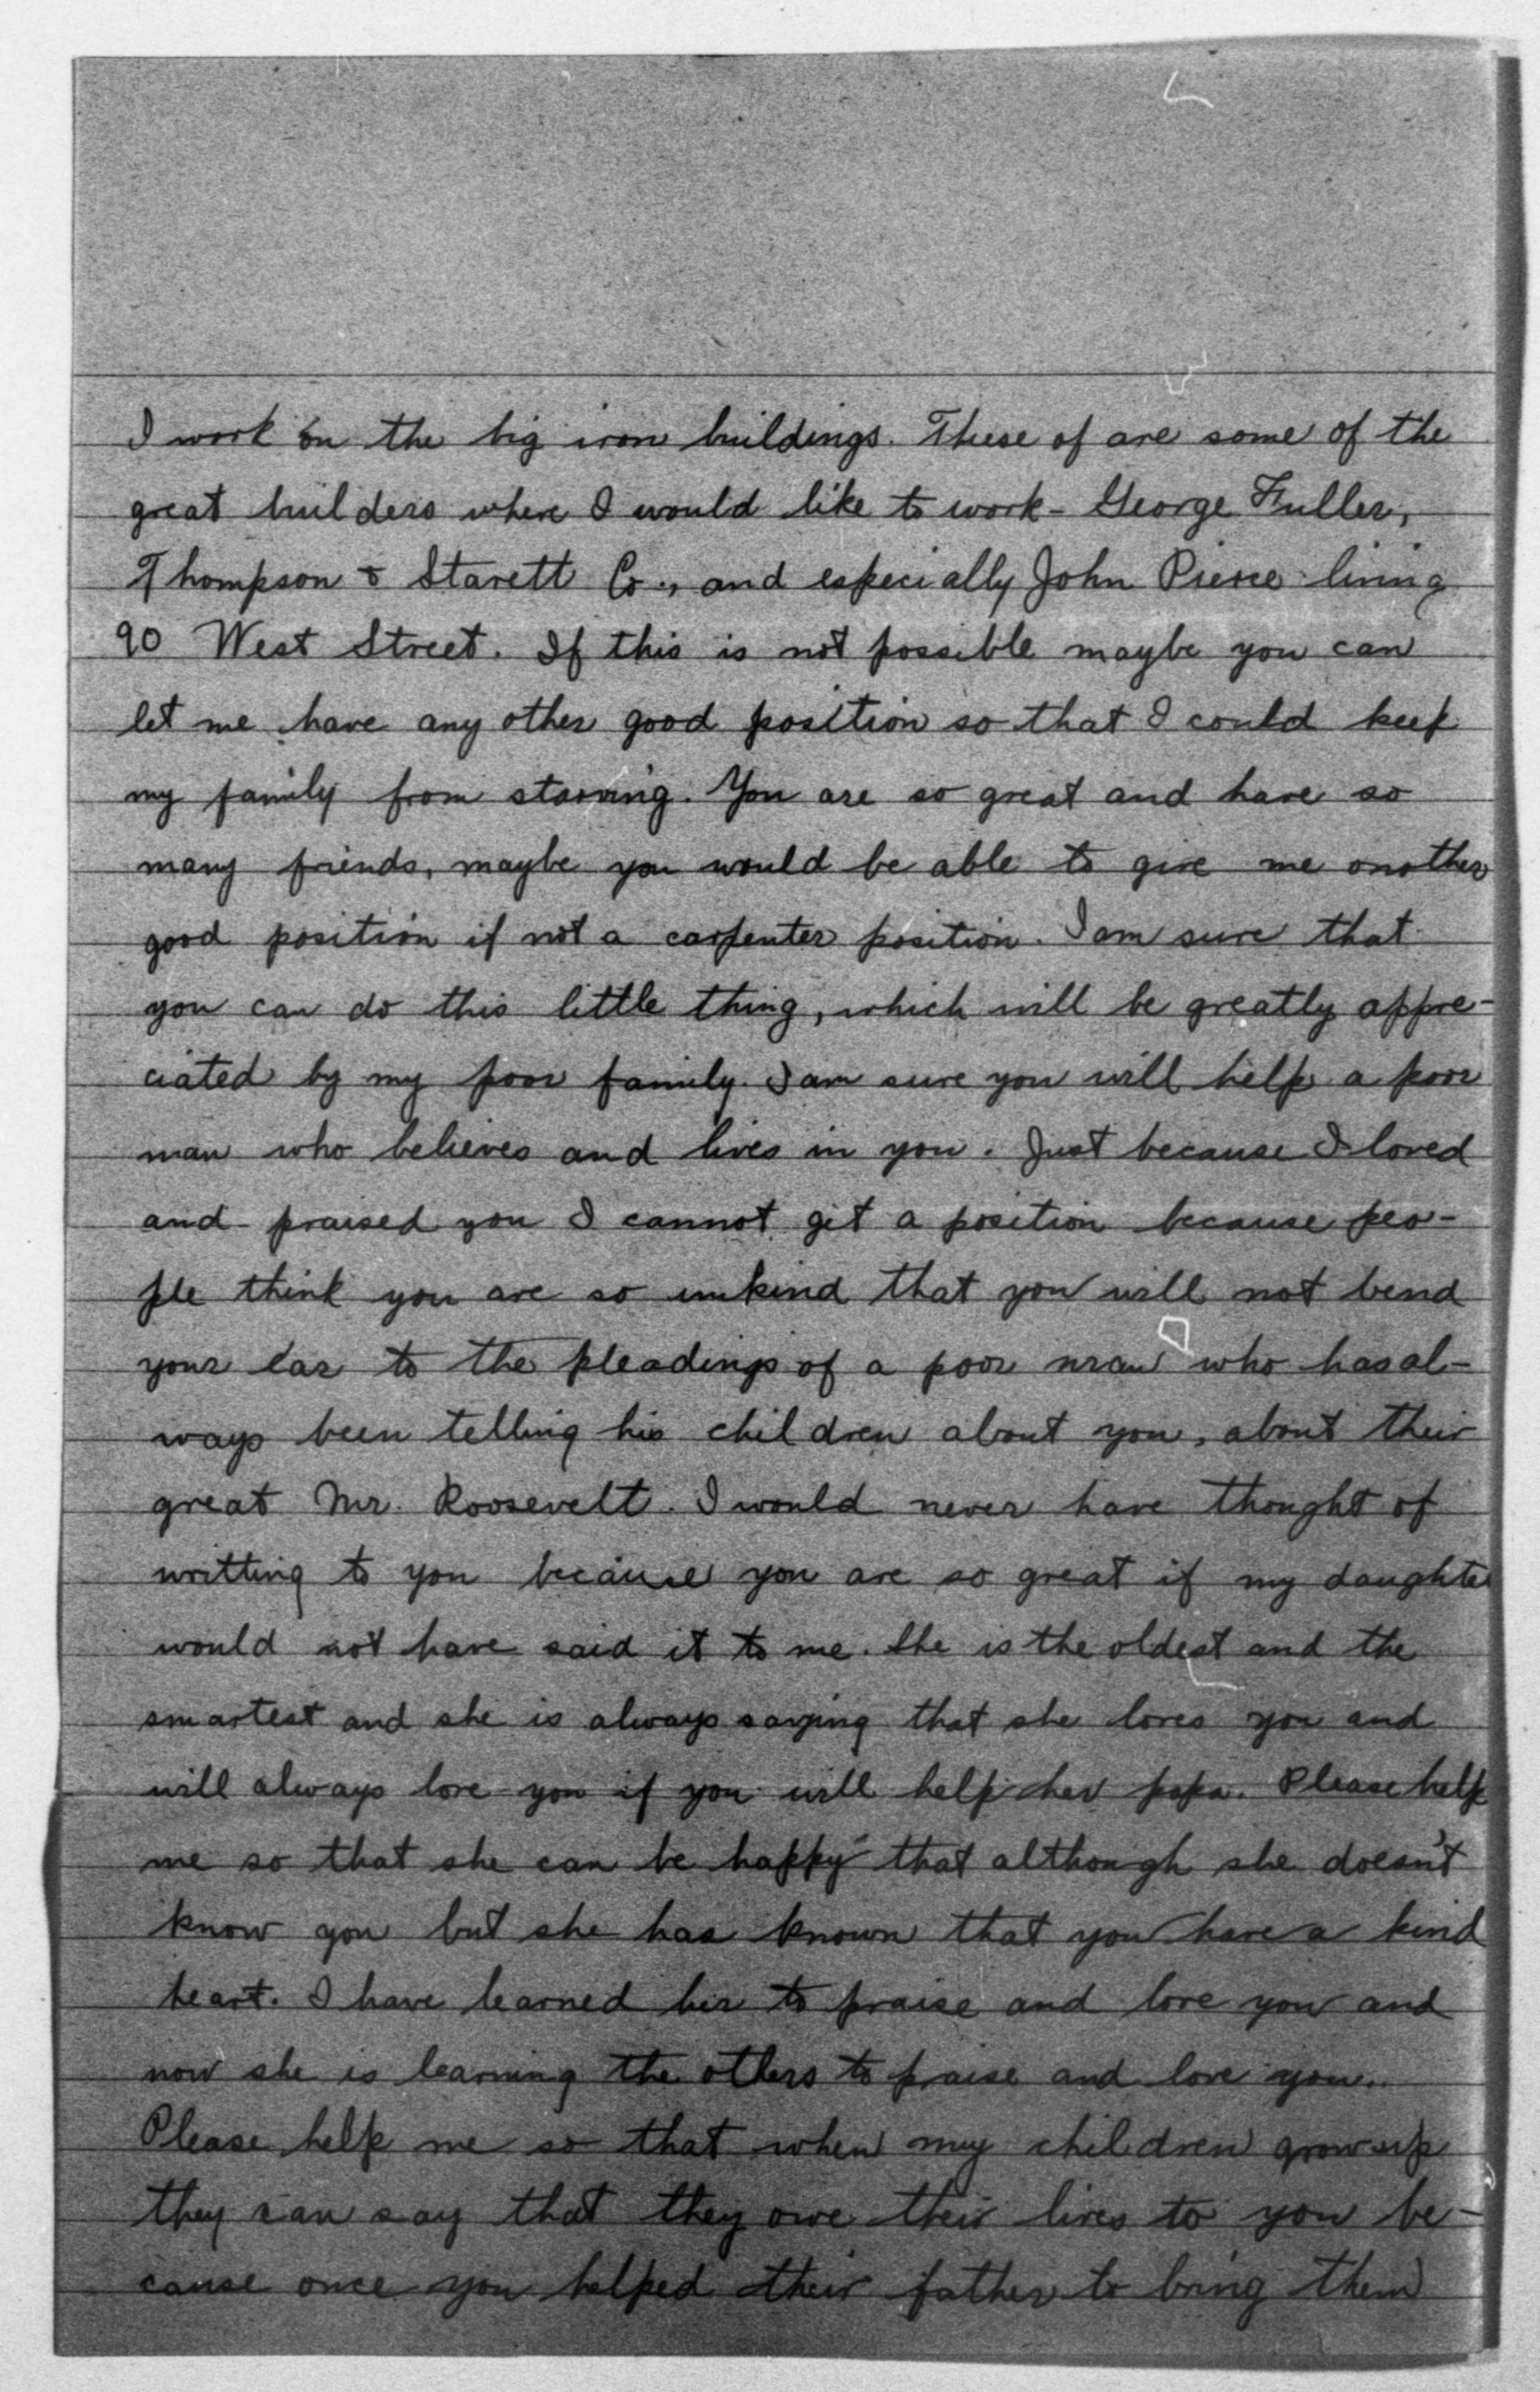 I work on the big iron buildings. These of are some of the
great builders where I would like to work - George Fuller,
Thompson & Starett Co., and especially John Pierce living
90 West Street. If this is not possible maybe you can
let me have any other good position so that I could keep
my family from starving. You are so great and have so
many friends, maybe you would be able to give me another
good position if not a carpenter position. I am sure that
you can do this little thing, which will be greatly appre-
ciated by my poor family. I am sure you will help a poor
man who believes and lives in you. Just because I loved
and praised you I cannot get a position because peo-
ple think you are so unkind that you will not bend
your ear to the pleadings of a poor man who has al-
ways been telling his children about you, about their
great Mr. Roosevelt. I would never have thought of
writting to you because you are so great if my daughter
would not have said it to me. She is the oldest and the
smartest and she is always saying that she loves you and
will always love you if you will help her papa. Please help
me so that she can be happy that although she doesn't
know you but she has known that you have a kind
heart. I have learned her to praise and love you and
now she is learning the others to praise and love you.
Please help me so that when my children grow up
they can say that they owe their lives to you be-
cause once you helped their father to bring them